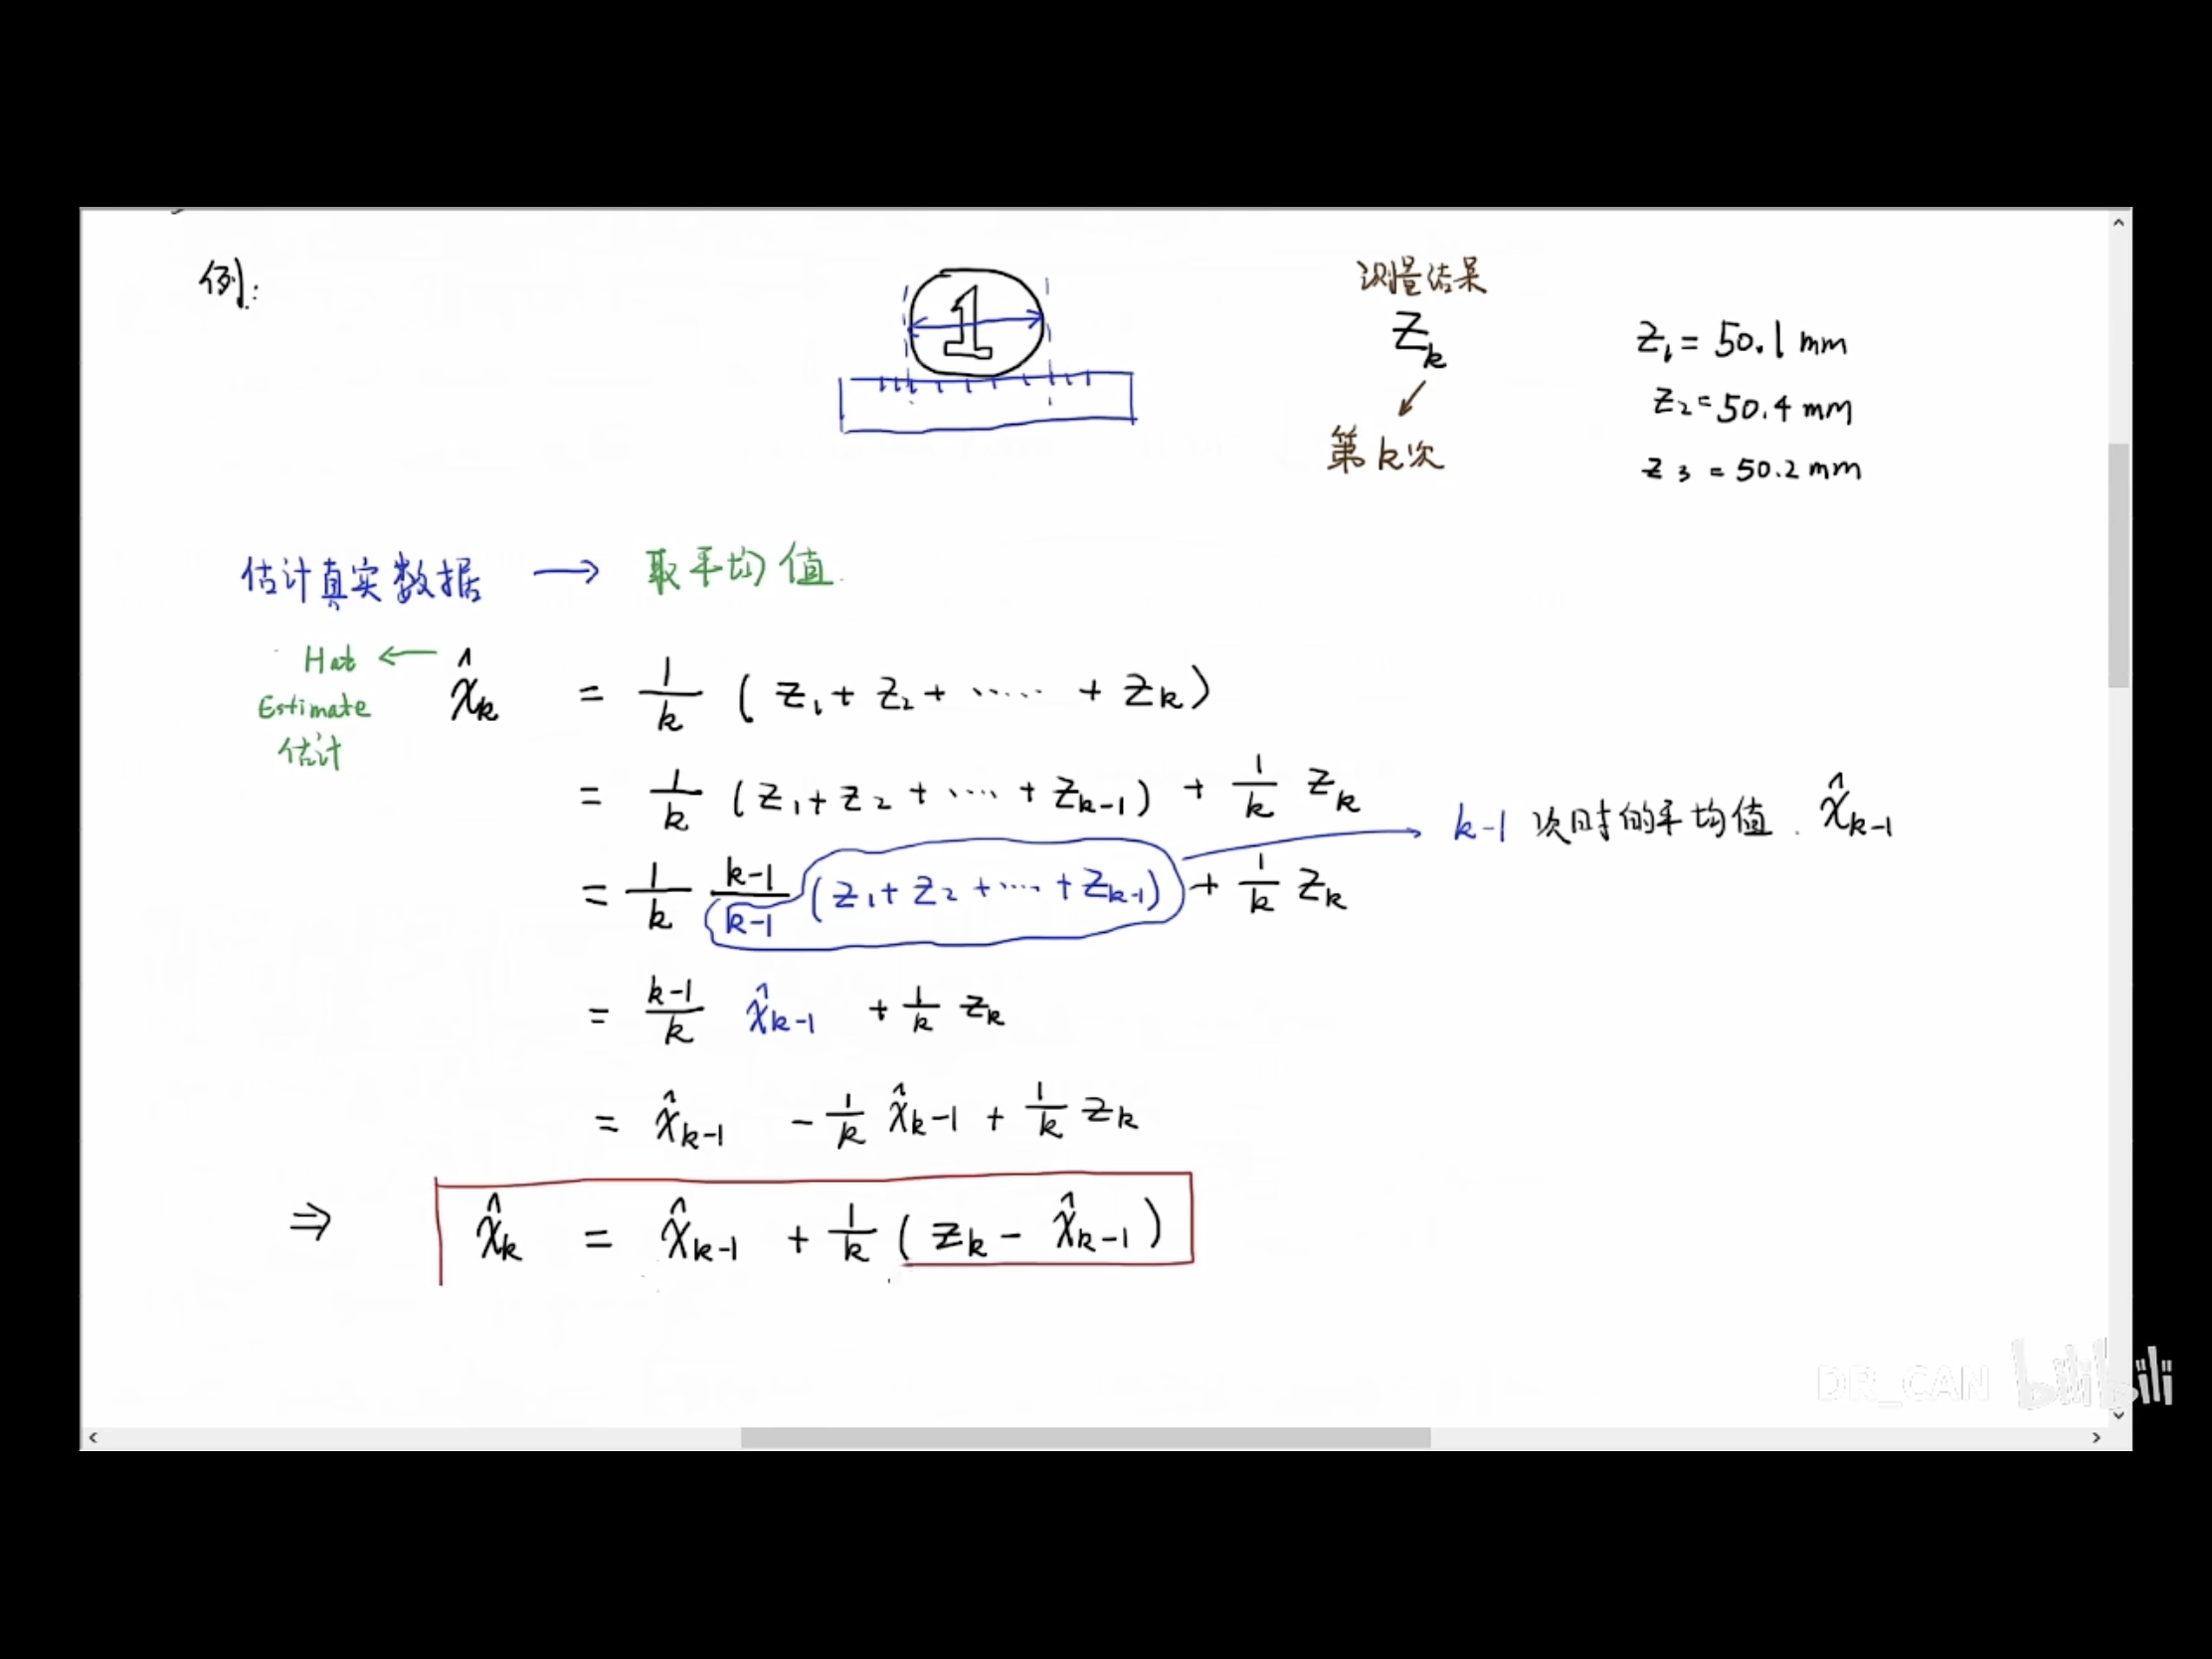 例:
1
测量结果
Z_k
第k次
Z_1 = 50.1 mm
Z_2 = 50.4 mm
Z_3 = 50.2 mm
估计真实数据 → 取平均值.
Hat ← x̂_k = 1/k (Z_1 + Z_2 + ⋯⋯ + Z_k)
Estimate
估计
= 1/k (Z_1 + Z_2 + ⋯ + Z_{k-1}) + 1/k Z_k
= 1/k (k-1)/(k-1) (Z_1 + Z_2 + ⋯ + Z_{k-1}) + 1/k Z_k → k-1 次时的平均值. x̂_{k-1}
= (k-1)/k x̂_{k-1} + 1/k Z_k
= x̂_{k-1} - 1/k x̂_{k-1} + 1/k Z_k
⇒ x̂_k = x̂_{k-1} + 1/k (Z_k - x̂_{k-1})
DR_CAN bilibili